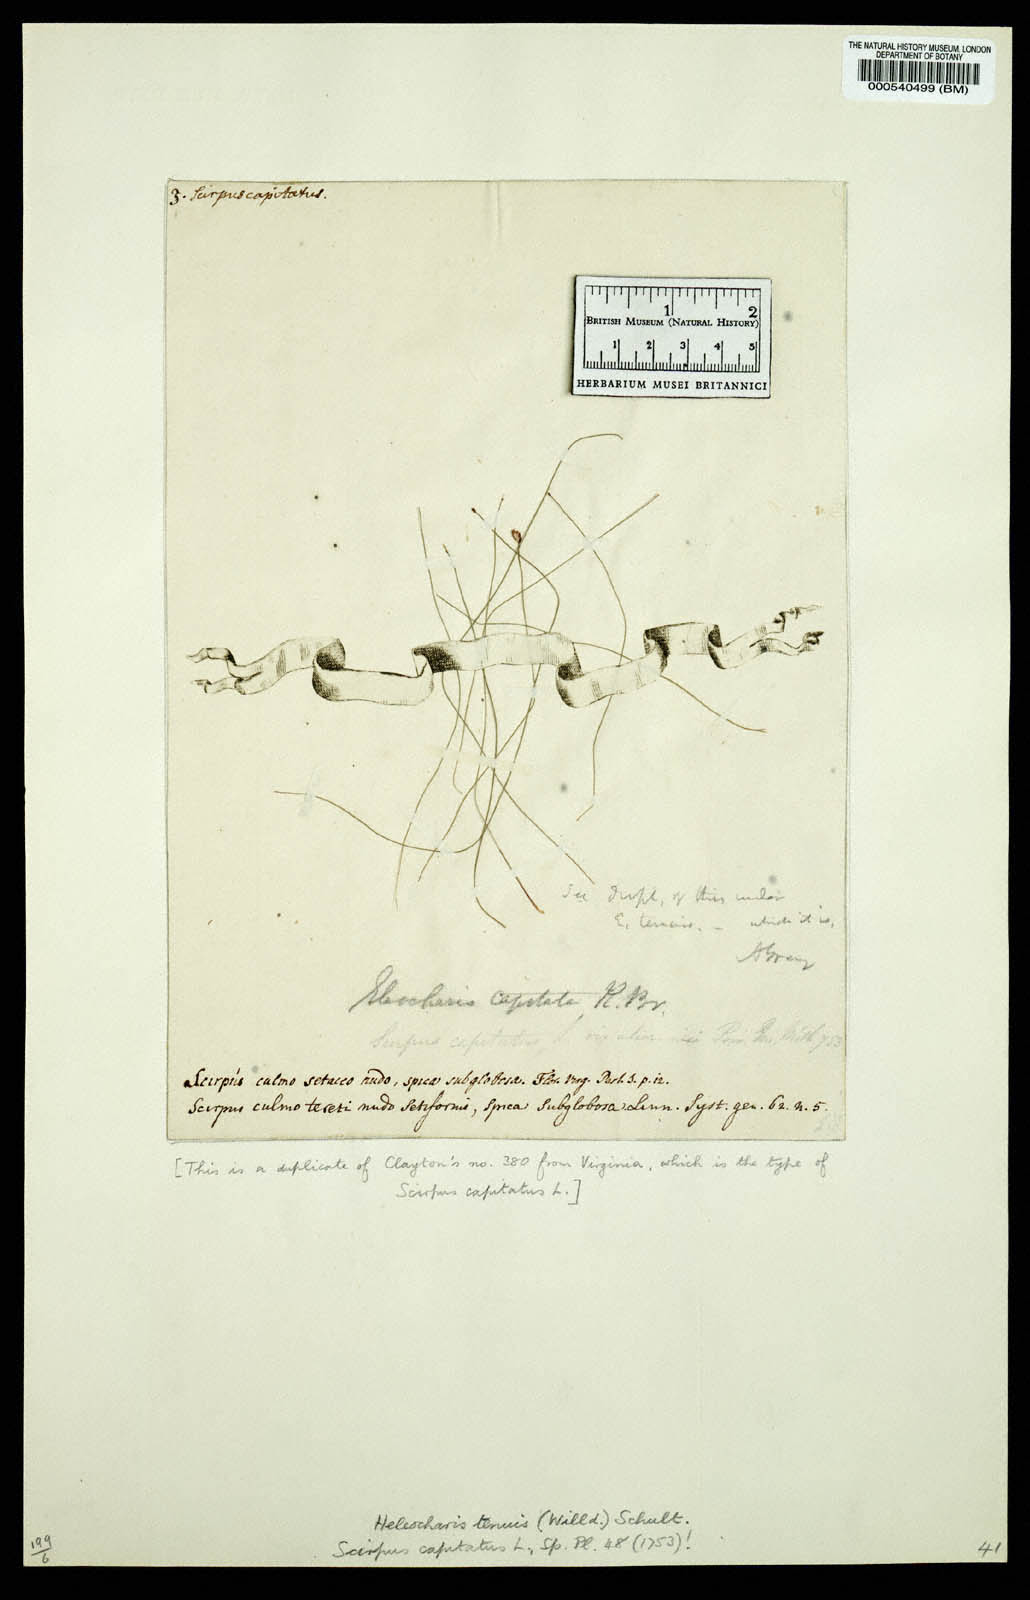 THE NATURAL HISTORY MUSEUM, LONDON
DEPARTMENT OF BOTANY
000540499 (BM)
3. Scirpus capitatus.
1 2
BRITISH MUSEUM (NATURAL HISTORY)
1 2 3 4 5
HERBARIUM MUSEI BRITANNICI
See dupl, of this under
E. tenuis. – which it is.
A Gray
Eleocharis capitata R. Br.
Scirpus capitatus, L.
Scirpus culmo setaceo nudo, spica subglobosa. Flor. Virg. Part. 3. p. 12.
Scirpus culmo tereti nudo setiformi, spica subglobosa Linn. Syst. gen. 62. n. 5.
[This is a duplicate of Clayton's no. 380 from Virginia, which is the type of
Scirpus capitatus L.]
Heleocharis tenuis (Willd.) Schult.
Scirpus capitatus L., Sp. Pl. 48 (1753)!
199/6
41